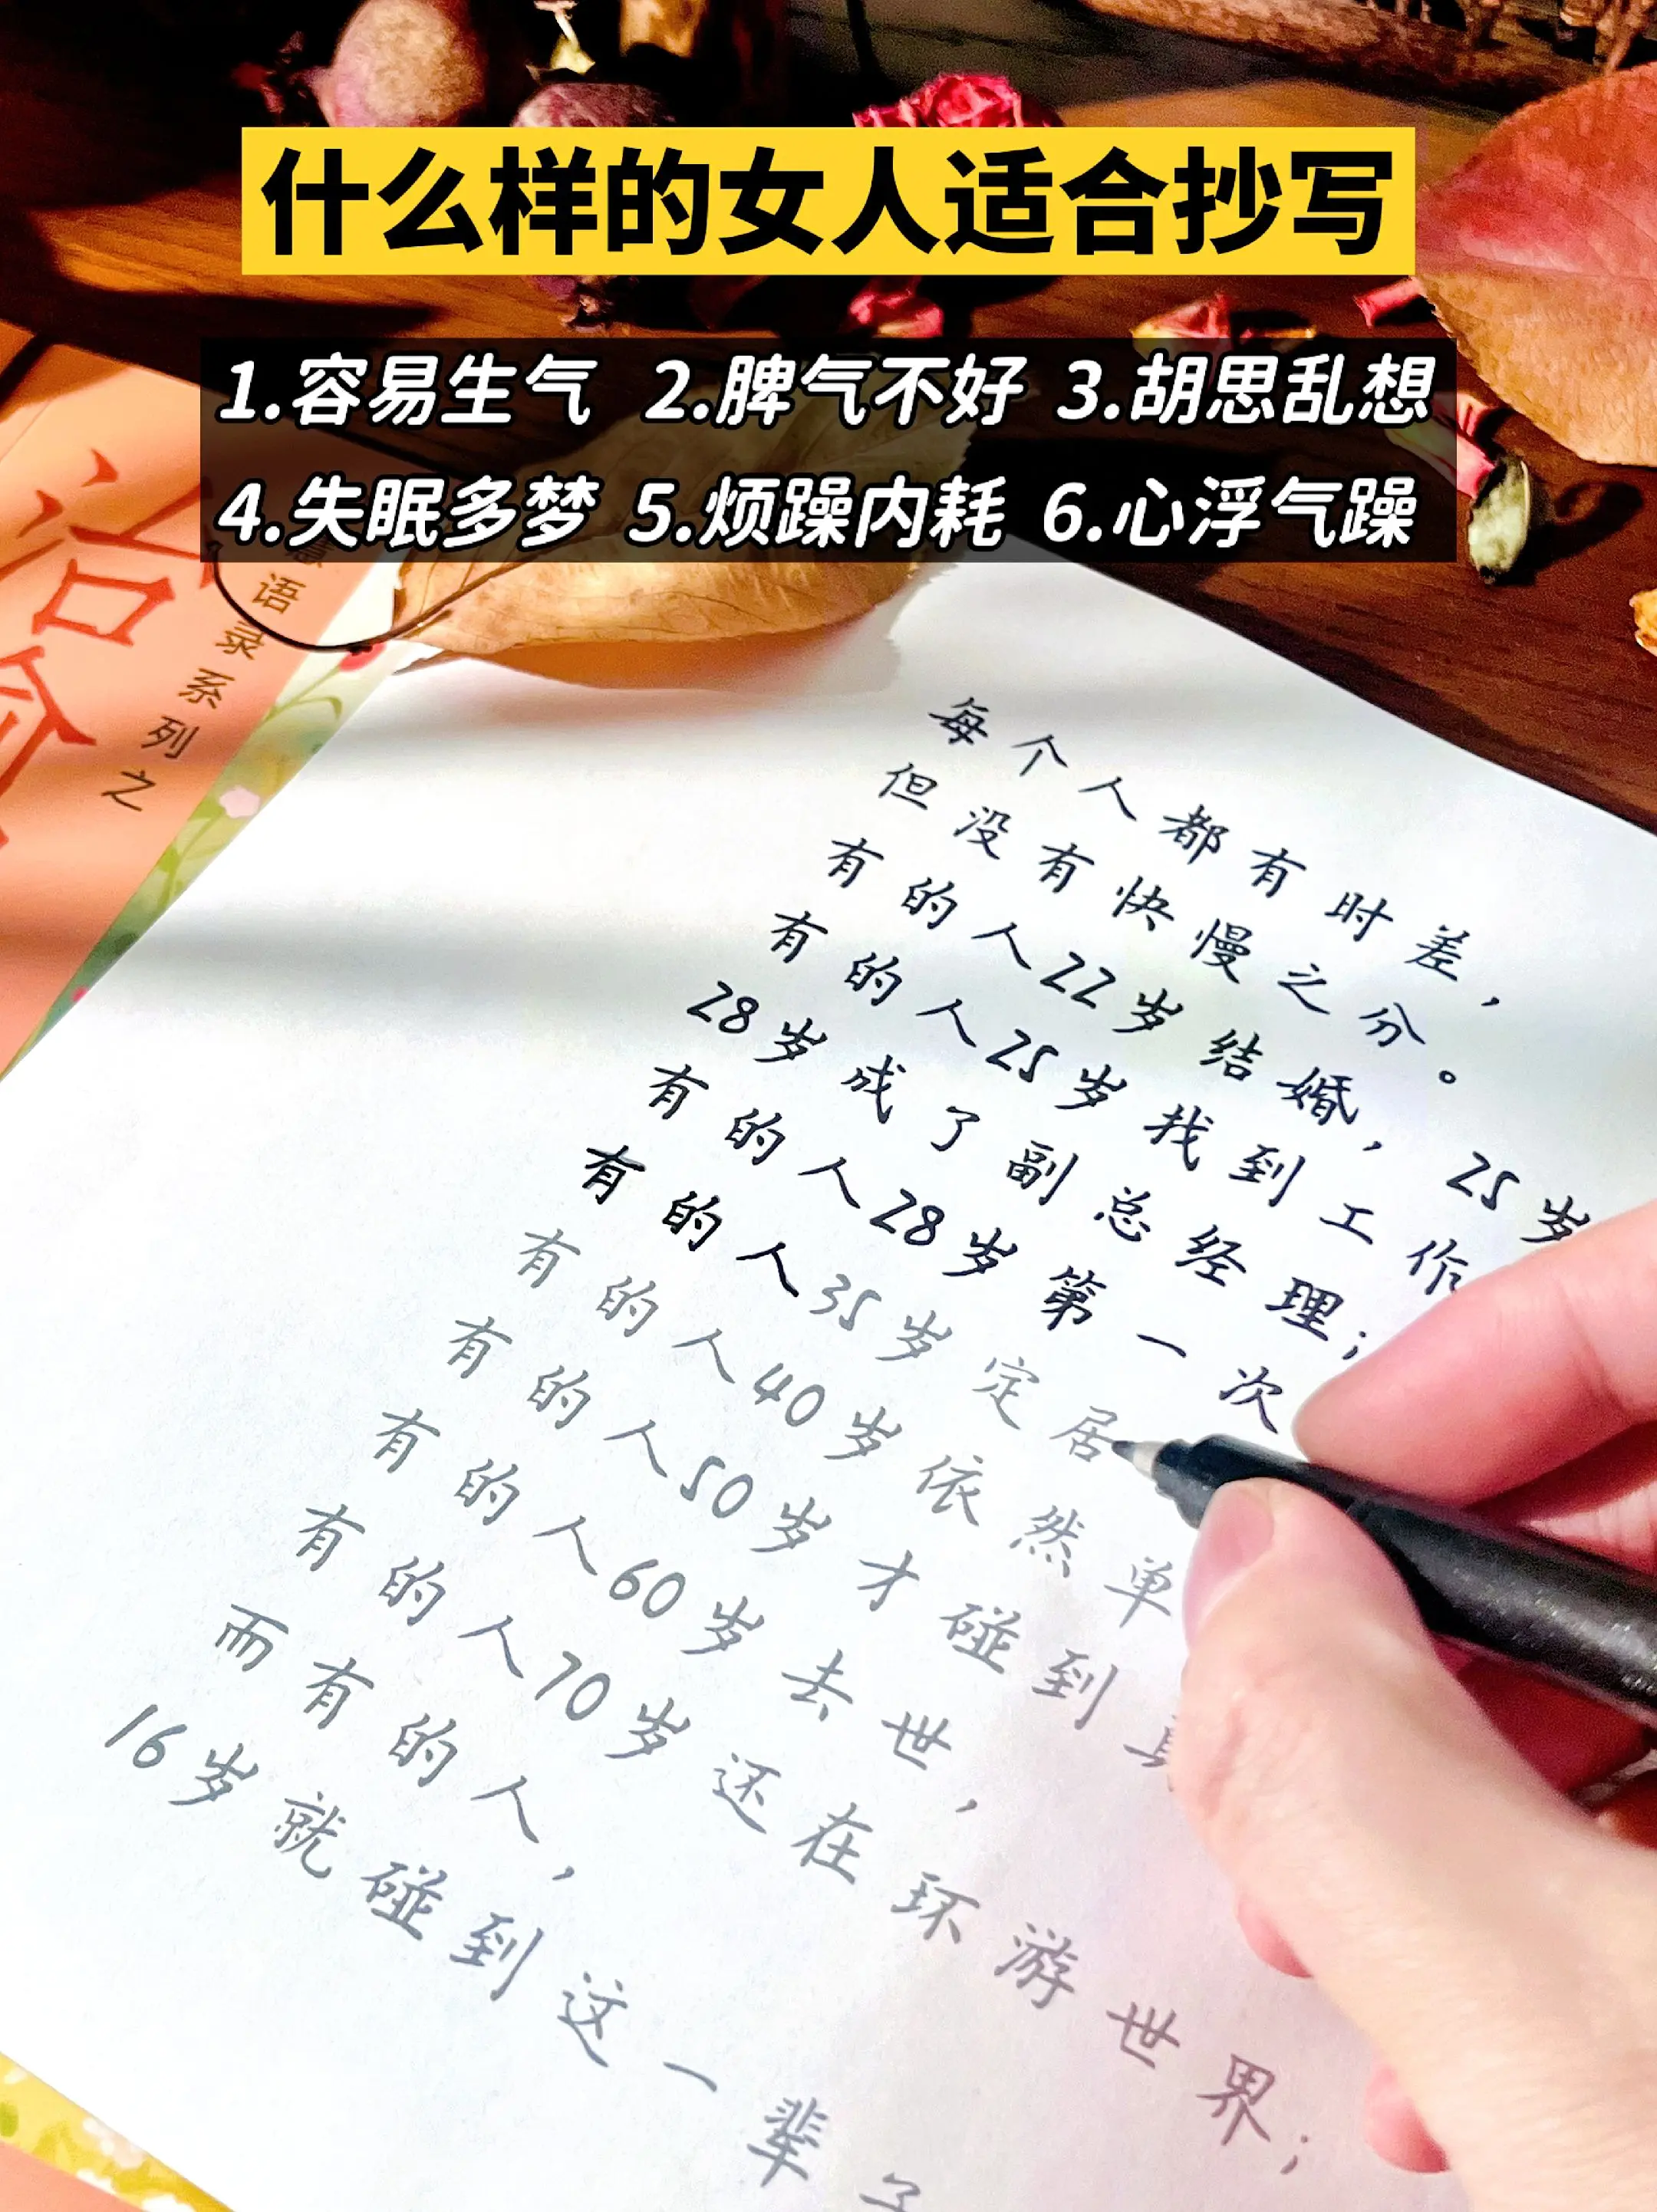 什么样的女人适合抄写
1.容易生气 2.脾气不好 3.胡思乱想
4.失眠多梦 5.烦躁内耗 6.心浮气躁
治愈
语录系列之
每个人都有时差，
但没有快慢之分。
有的人22岁结婚，25岁
有的人25岁找到工作
28岁成了副总经理；
有的人28岁第一次
有的人35岁定居
有的人40岁依然单
有的人50岁才碰到
有的人60岁去世，
有的人70岁还在环游世界；
而有的人，
16岁就碰到这一辈子